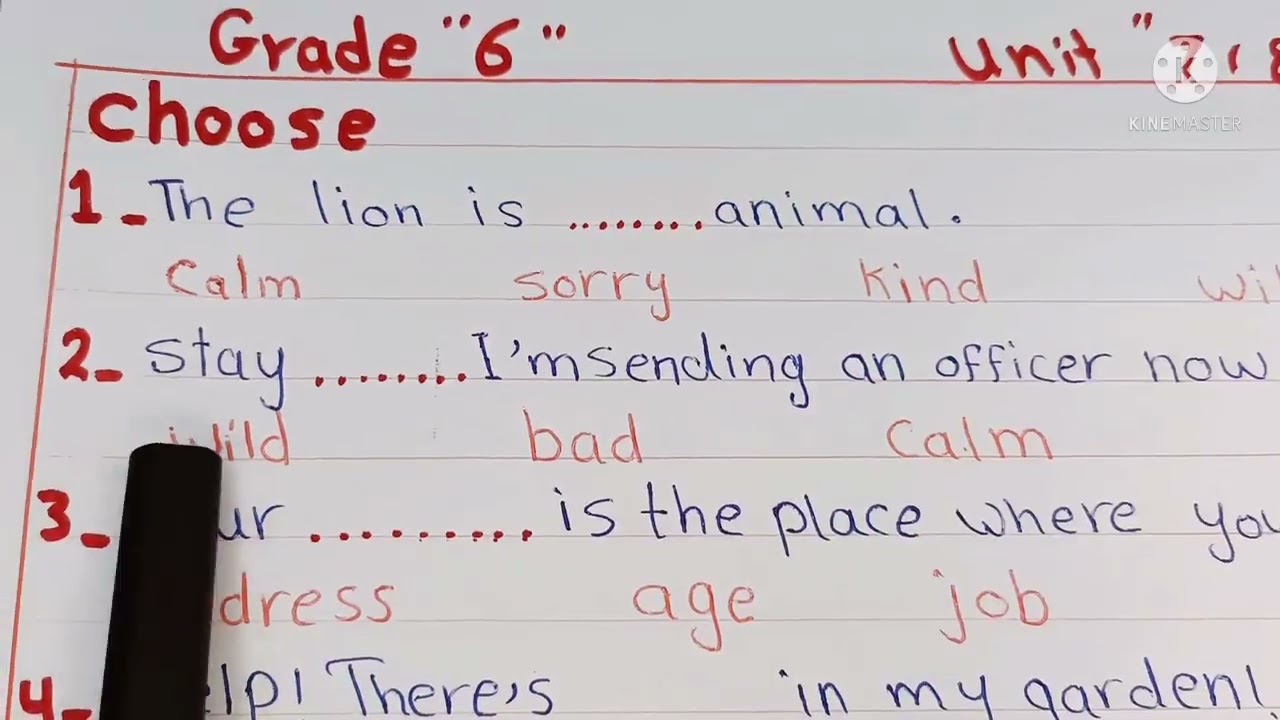 Grade "6" Unit "7,
KINEMASTER
Choose
1- The lion is ........ animal.
Calm sorry kind
2- Stay ........ I'm sending an officer now
wild bad calm
3- ......... is the place where
age job
4- There's in my garden!